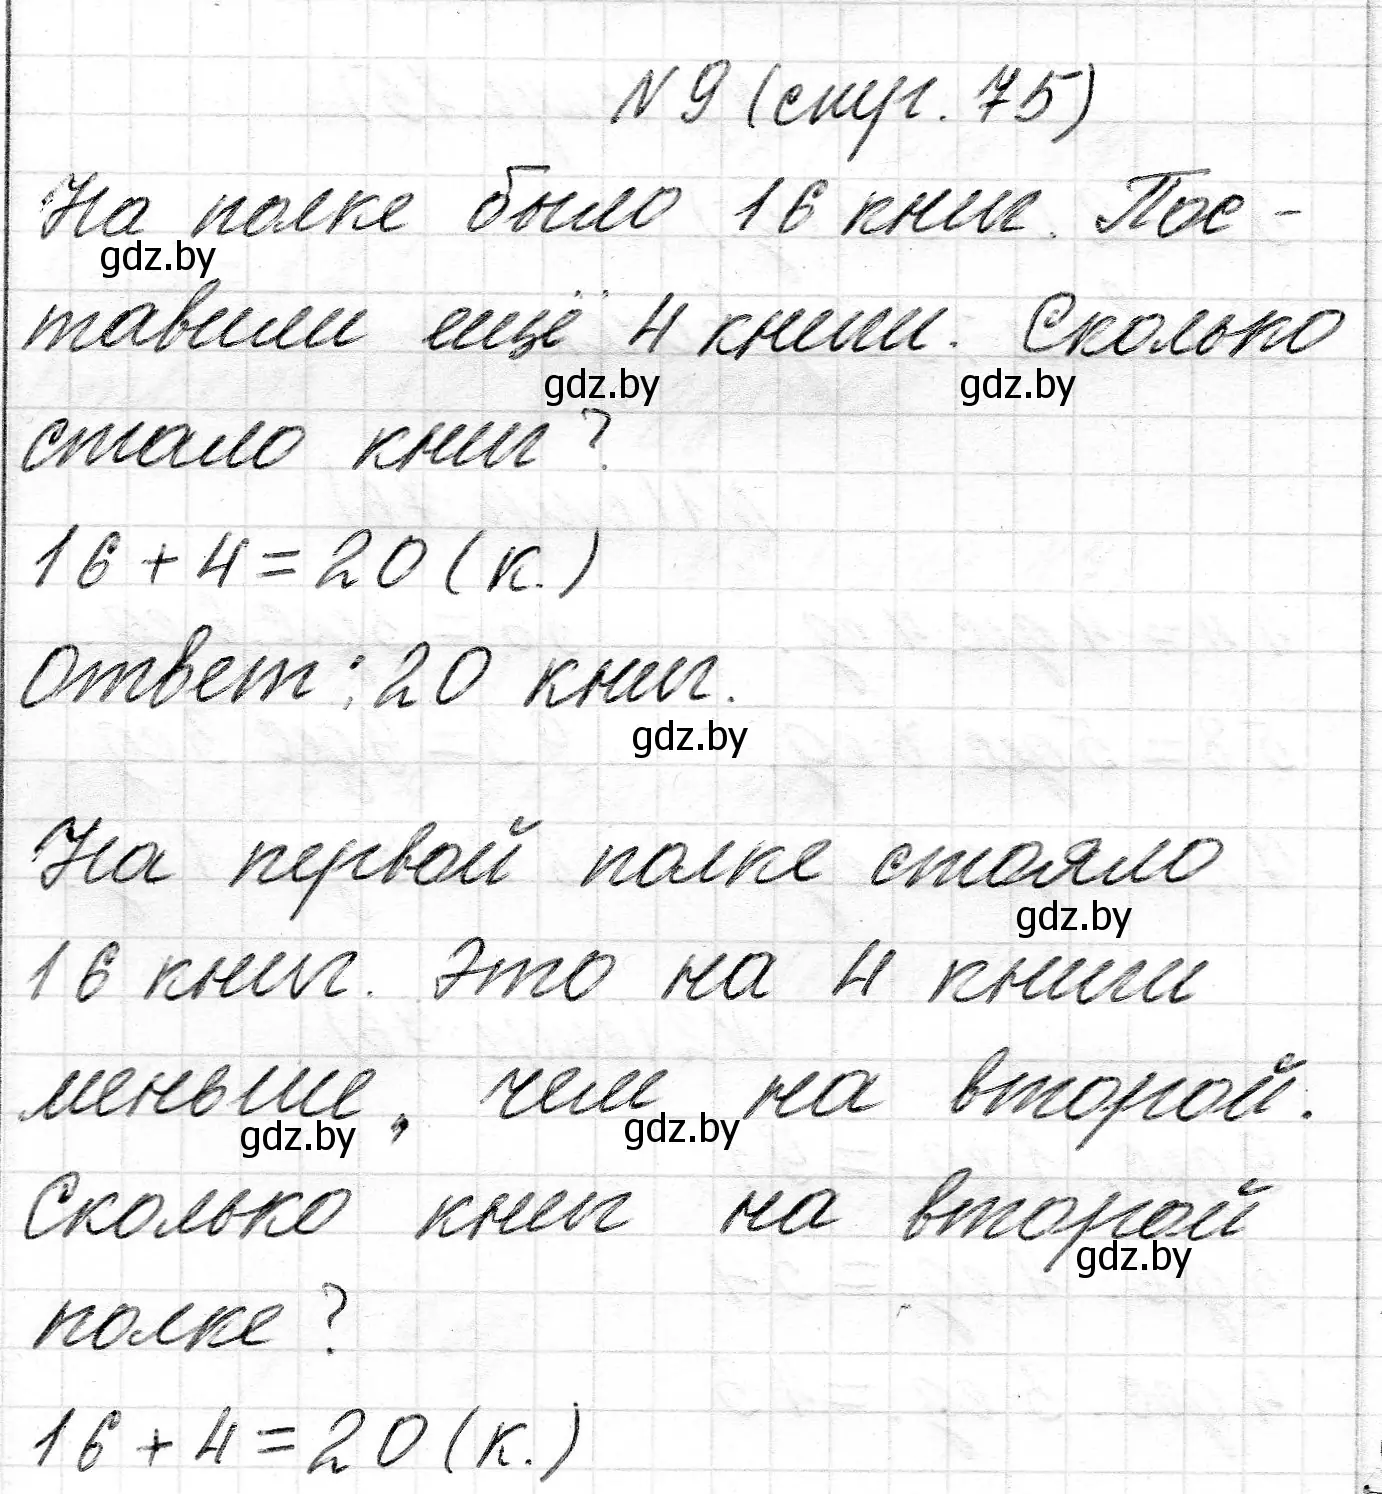 N 9 (стр. 75)
На полке было 16 книг. Пос-
gdz.by
тавили ещё 4 книги. Сколько
gdz.by gdz.by
стало книг?
16 + 4 = 20 (к.)
Ответ: 20 книг.
gdz.by
На первой полке стояло
gdz.by
16 книг. Это на 4 книги
меньше, чем на второй.
gdz.by gdz.by
Сколько книг на второй
gdz.by
полке?
16 + 4 = 20 (к.)